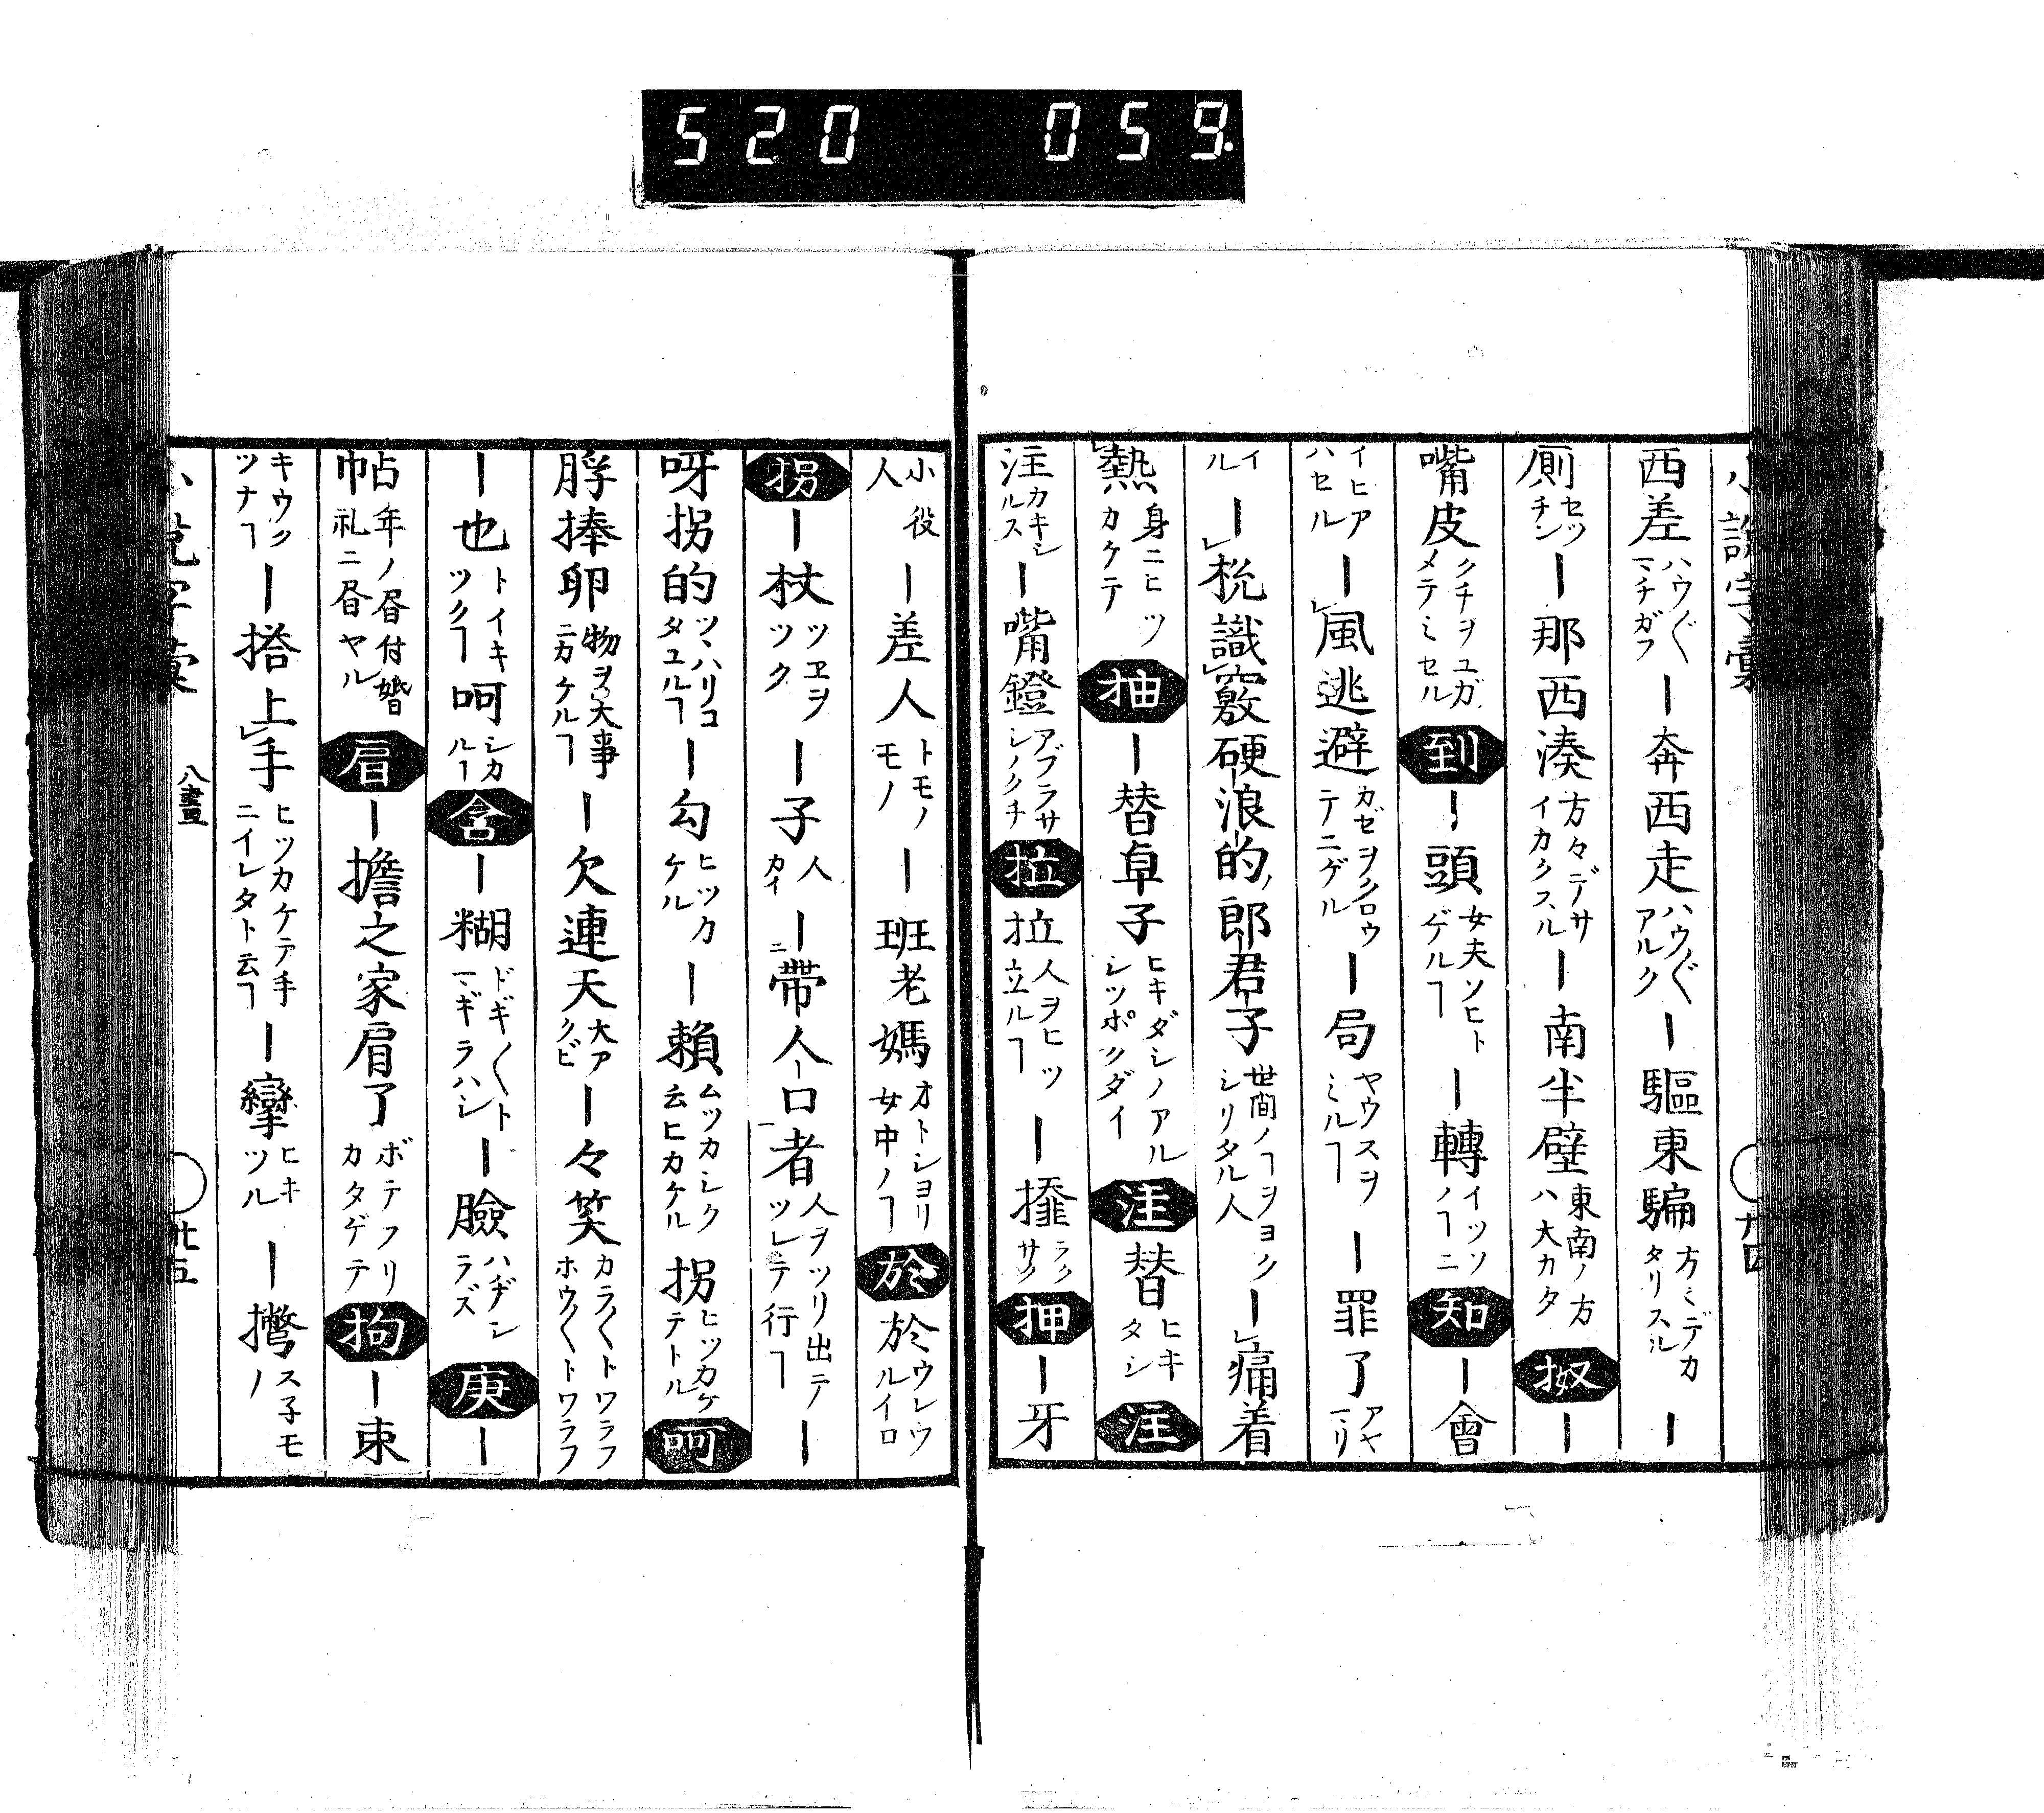 520 059.
西差 ハウ〴〵マチガフ ー奔西走 ハウ〴〵アルク ー驅東騙 方〻デカタリスル ー
厠 セツチン ー那西湊 方々デサイカクスル ー南半壁 東南ノ方ハ大カタ 扠 ー
嘴皮 クチヲユガメテミセル 到 ー頭 女夫ソヒトゲルヿ ー轉 イツソノヿニ 知 ー會
イヒアハセル ー風逃避 カゼヲクロウテニゲル ー局 ヤウスヲミルヿ ー罪了 アヤマリ
イル ー
識竅硬浪的郎君子 世間ノヿヲヨクシリタル人 ー痛着
熱 身ニヒツカケテ 抽 ー替卓子 ヒキダシノアルシツポクダイ 注 替 ヒキタシ 注
注 カキシルス ー嘴鐙 アブラサシノクチ 拉 拉 人ヲヒツ立ルヿ ー 押 ー牙
小役人 ー差人 トモノモノ ー班老媽 オトシヨリ女中ノヿ 於 於 ウレウルイロ
拐 ー杖 ツヱヲツク ー子 人カイ ー帶人口者 人ヲツリ出テツレテ行ヿ ー
呀拐的 ツヽハリコタユルヿ ー勾 ヒツカケル ー賴 ムツカシク云ヒカケル 拐 ヒツカケテトル 呵
脬捧卵 物ヲ大事ニカケルヿ ー欠連天 大アクビ ー々笑 カラ〱トワラフホウ〱トワラフ
ー也 トイキツクヿ 呵 シカルー 含 ー糊 ドギ〱トマギラハシ ー臉 ハヂシラズ 庚 ー
帖 年ノ昏付婚礼ニ昏ヤル 肩 ー擔之家肩了 ボテフリカタゲテ 拘 ー束
キウクツナヿ ー搭上手 ヒツカケテ手ニイレタト云ヿ ー攣 ヒキツル ー撆 ス子モノ
八畫
廿五